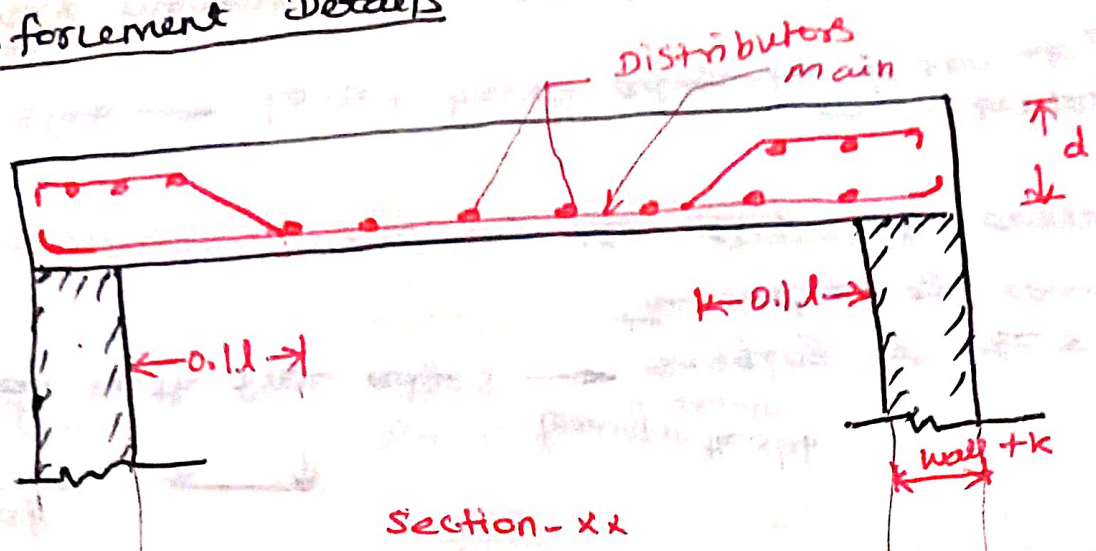 forcement Details
Distributors
main
d
0.1l
0.1l
wall tk
Section - xx